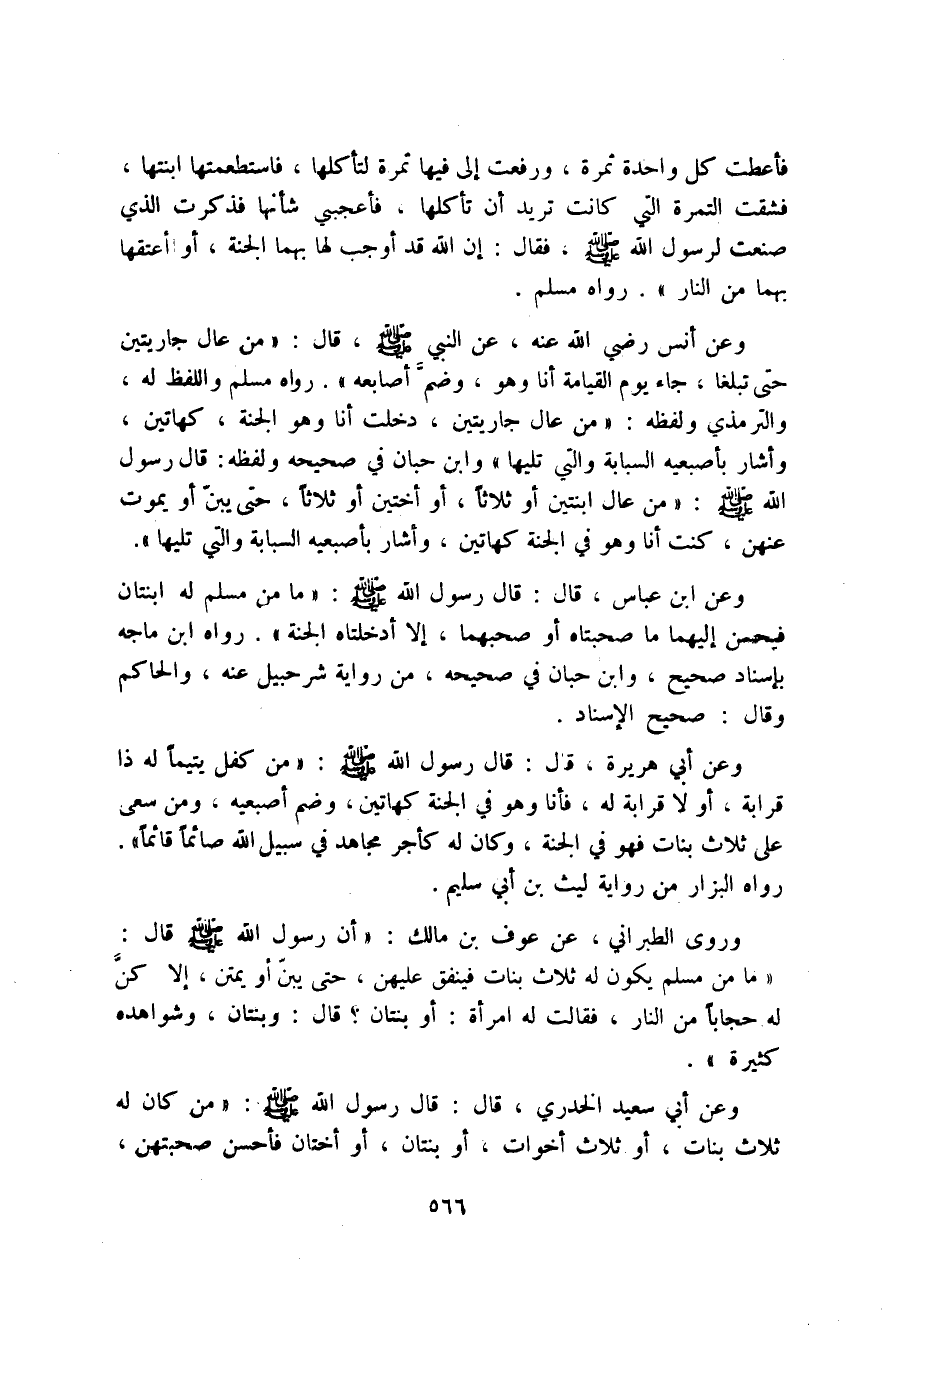 فأعطت كل واحدة تمرة ، ورفعت إلى فيها تمرة لتأكلها ، فاستطعمتها ابنتها ،
فشقت التمرة التي كانت تريد أن تأكلها ، فأعجبني شأنها فذكرت الذي
صنعت لرسول الله ﷺ ، فقال : إن الله قد أوجب لها بهما الجنة ، أو أعتقها
بهما من النار » . رواه مسلم .
وعن أنس رضي الله عنه ، عن النبي ﷺ ، قال : « من عال جاريتين
حتى تبلغا ، جاء يوم القيامة أنا وهو ، وضمَّ أصابعه » . رواه مسلم واللفظ له ،
والترمذي ولفظه : « من عال جاريتين ، دخلت أنا وهو الجنة ، كهاتين ،
وأشار بأصبعيه السبابة والتي تليها » وابن حبان في صحيحه ولفظه: قال رسول
الله ﷺ : « من عال ابنتين أو ثلاثاً ، أو أختين أو ثلاثاً ، حتى يبنّ أو يموت
عنهن ، كنت أنا وهو في الجنة كهاتين ، وأشار بأصبعيه السبابة والتي تليها ».
وعن ابن عباس ، قال : قال رسول الله ﷺ : « ما من مسلم له ابنتان
فيحسن إليهما ما صحبتاه أو صحبهما ، إلا أدخلتاه الجنة » . رواه ابن ماجه
بإسناد صحيح ، وابن حبان في صحيحه ، من رواية شرحبيل عنه ، والحاكم
وقال : صحيح الإسناد .
وعن أبي هريرة ، قال : قال رسول الله ﷺ : « من كفل يتيماً له ذا
قرابة ، أو لا قرابة له ، فأنا وهو في الجنة كهاتين ، وضم أصبعيه ، ومن سعى
على ثلاث بنات فهو في الجنة ، وكان له كأجر مجاهد في سبيل الله صائماً قائماً» .
رواه البزار من رواية ليث بن أبي سليم .
وروى الطبراني ، عن عوف بن مالك : « أن رسول الله ﷺ قال :
« ما من مسلم يكون له ثلاث بنات فينفق عليهن ، حتى يبنّ أو يمتن ، إلا كنَّ
له حجاباً من النار ، فقالت له امرأة : أو بنتان ؟ قال : وبنتان ، وشواهده
كثيرة » .
وعن أبي سعيد الخدري ، قال : قال رسول الله ﷺ : « من كان له
ثلاث بنات ، أو ثلاث أخوات ، أو بنتان ، أو أختان فأحسن صحبتهن ،
٥٦٦